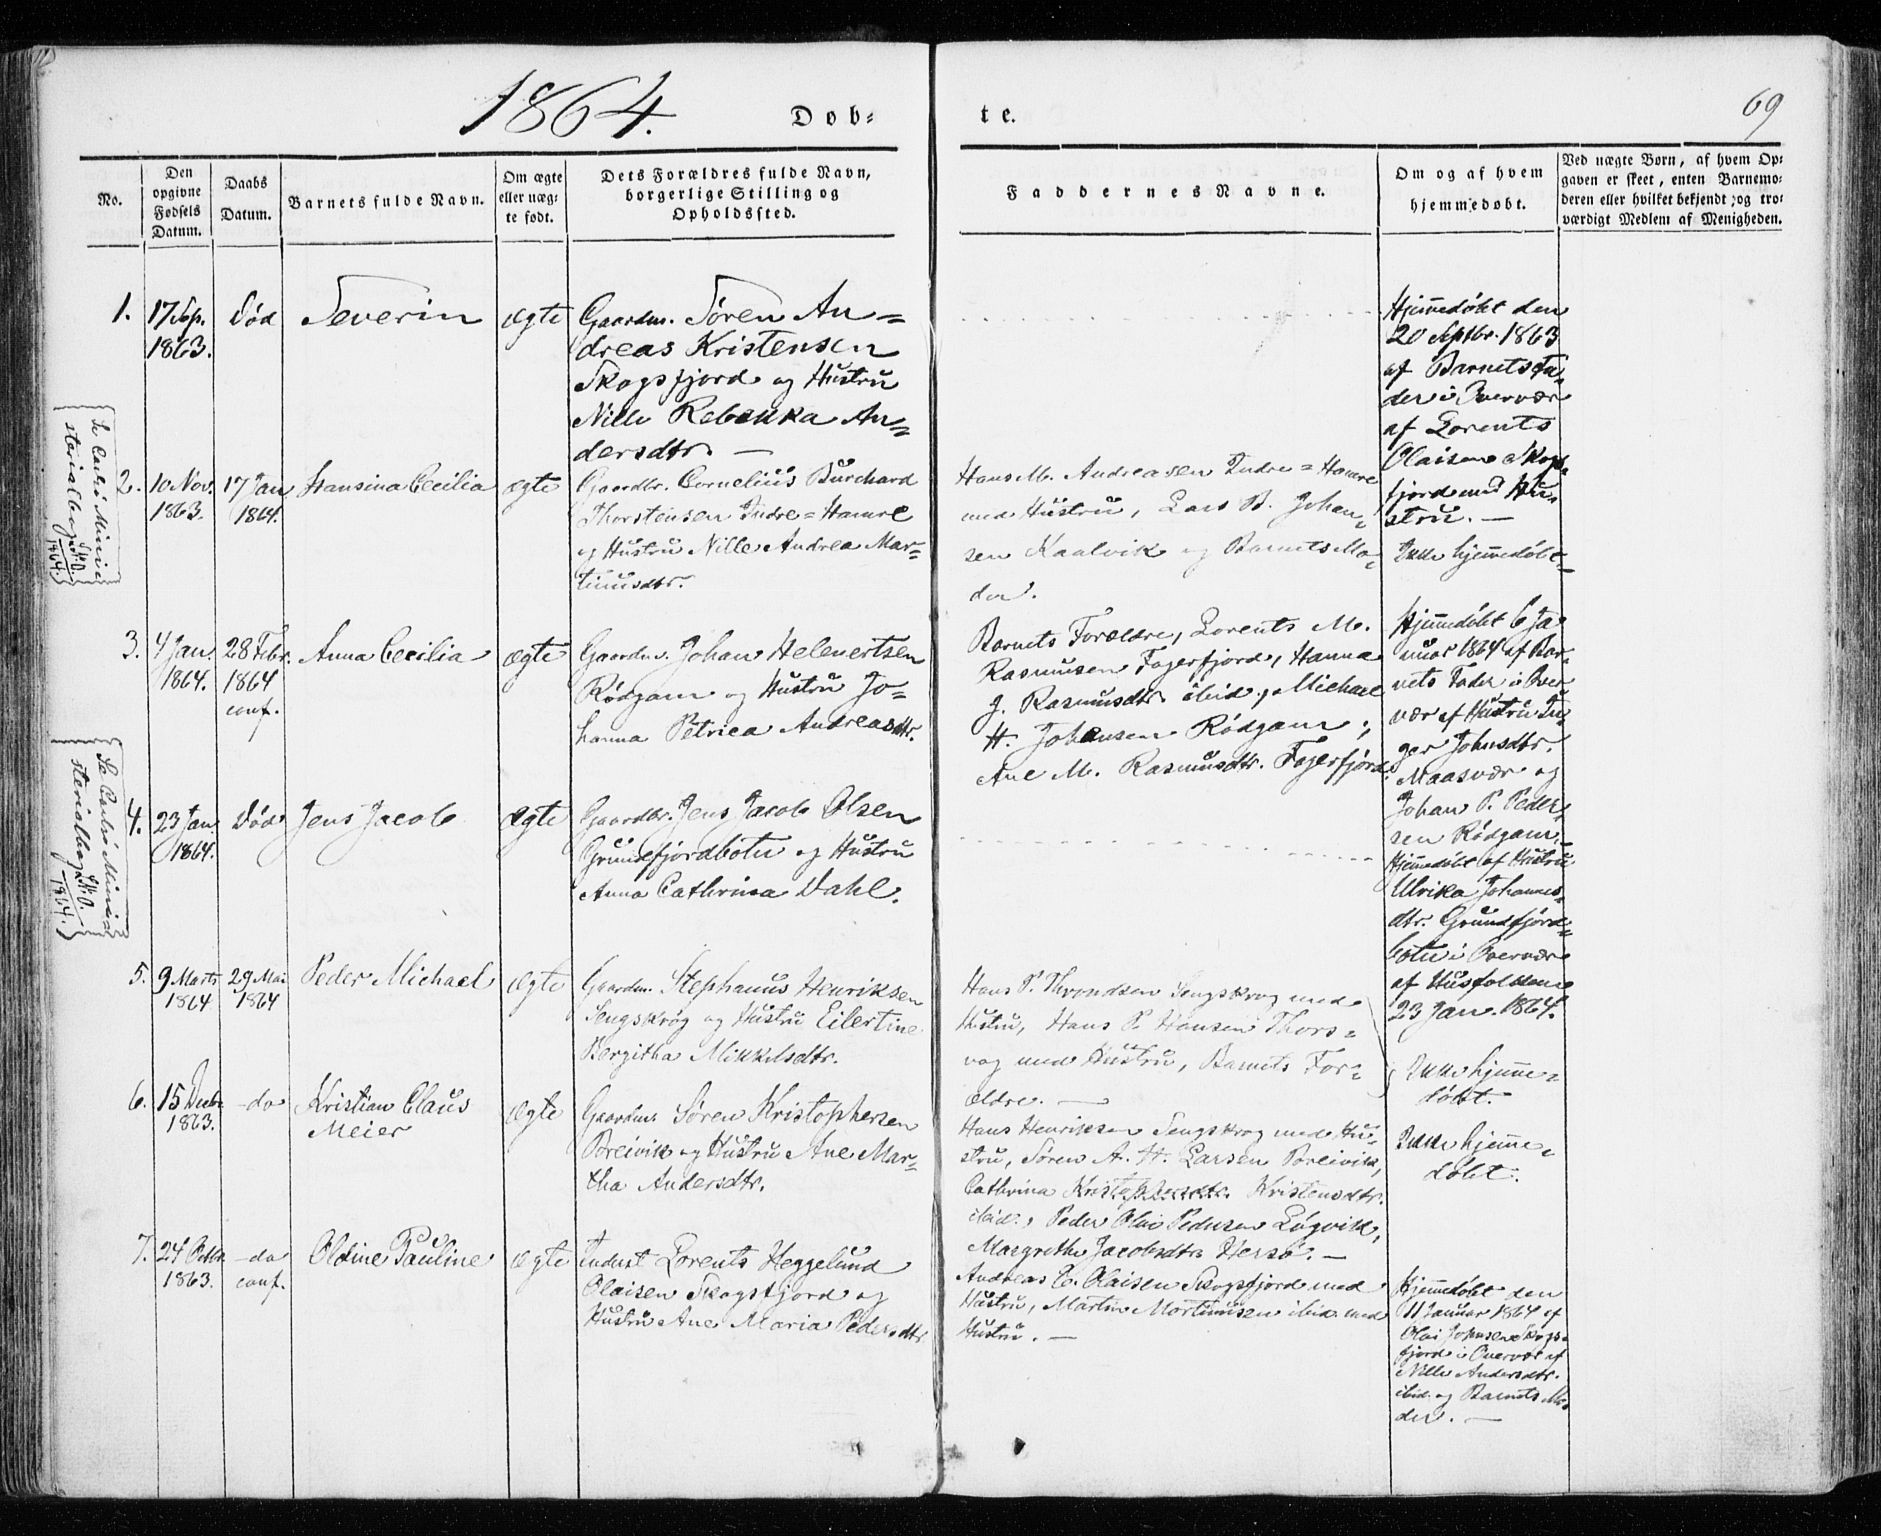 1864.
Døb=
te.
69
No.
Den
opgivne
Fødsels
Datum.
Daabs
Datum.
Barnets fulde Navn.
Om ægte
eller uæg=
te født.
Dets Forældres fulde Navn,
borgerlige Stilling og
Opholdssted.
Faddernes Navne.
Om og af hvem
hjemmedøbt.
Ved uægte Børn, af hvem Op=
gaven er skeet, enten Barnemo=
deren eller hvilket bekjendt, og tro=
værdigt Medlem af Menigheden.
1.
17 Sep.
1863.
Død
Severin
ægte
Gaardm. Søren An=
dreas Kristensen
Skogsfjord og Hustru
Nille Rebekka An=
dersdtr. —
Hjemmedøbt den
20 Septbr. 1863
af Barnets Fa=
der i Overvær
af Lorents
Olaisen Skogs=
fjord med Hu=
stru. —
2.
10 Nov.
1863.
17 Jan
1864.
Hansina Cecilia
ægte
Gaardbr. Cornelius Burchard
Thorstensen Indre=Hamre
og Hustru Nille Andrea Mar=
tinusdtr.
Hans M. Andreasen Indre=Hamre
med Hustru, Lars B. Johan=
sen Kaalvik og Barnets Mo=
der.
Ikke hjemmedøbt
3.
4 Jan.
1864.
28 Febr.
1864
conf.
Anna Cecilia
ægte
Gaardm. Johan Helenertsen
Rødgam og Hustru Jo=
hanna Petrica Andreasdtr.
Barnets Forældre, Lorents M.
Rasmusen Fagerfjord, Hanna
J. Rasmusdtr. ibid., Michael
H. Johansen Rødgam,
Ane M. Rasmusdtr. Fagerfjord.
Hjemmedøbt 6 Ja
nuar 1864 af Bar=
nets Fader i Over
vær af Hustru In
ger Johnsdtr.
Maasvær og
Johan P. Peder=
sen Rødgam.
4.
23 Jan
1864.
Død
Jens Jacob
ægte
Gaardbr. Jens Jacob Olsen
Grundfjordbotn og Hustru
Anna Cathrina Dahl.
Hjemmedøbt af Hustru
Ulrika Johannes=
dtr. Grundfjord=
botn i Overvær
af Husfolkene
23 Jan. 1864.
5.
9 Marts
1864
29 Mai
1864
Peder Michael
ægte
Gaardm. Stephanus Henriksen
Sengskrog og Hustru Eilertine
Bergitha Mikkelsdtr.
Hans P. Throndsen Sengskrog med
Hustru, Hans P. Hansen Thors=
vag med Hustru, Barnets For=
ældre. —
Ikke hjemme=
døbt.
6.
15 Decbr
1863.
-do
Kristian Claus
Meier
ægte
Gaardm. Søren Kristophersen
Breivik og Hustru Ane Mar=
tha Andersdtr.
Hans Henriksen Sengskrog med Hu=
stru, Søren A. H. Larsen Breivik,
Cathrina Kristophersdtr. Kristensdtr.
ibid., Peder Olai Pedersen Løgvik,
Margrethe Jacobsdtr. Hersø. —
Ikke hjemme=
døbt.
7.
24 Octbr.
1863.
-do
conf.
Oldine Pauline
ægte
Inderst Lorents Heggelund
Olaisen Skogsfjord og
Hustru Ane Maria Pedersdtr.
Andreas C. Olaisen Skogsfjord med
Hustru, Martin Mortinusen ibid. med
Hustru. —
Hjemmedøbt den
11 Januar 1864 af
Olai Johnsen Skogs=
fjord i Overvær af
Nille Andersdtr.
ibid. og Barnets Mo
der. —
1864.
1864.